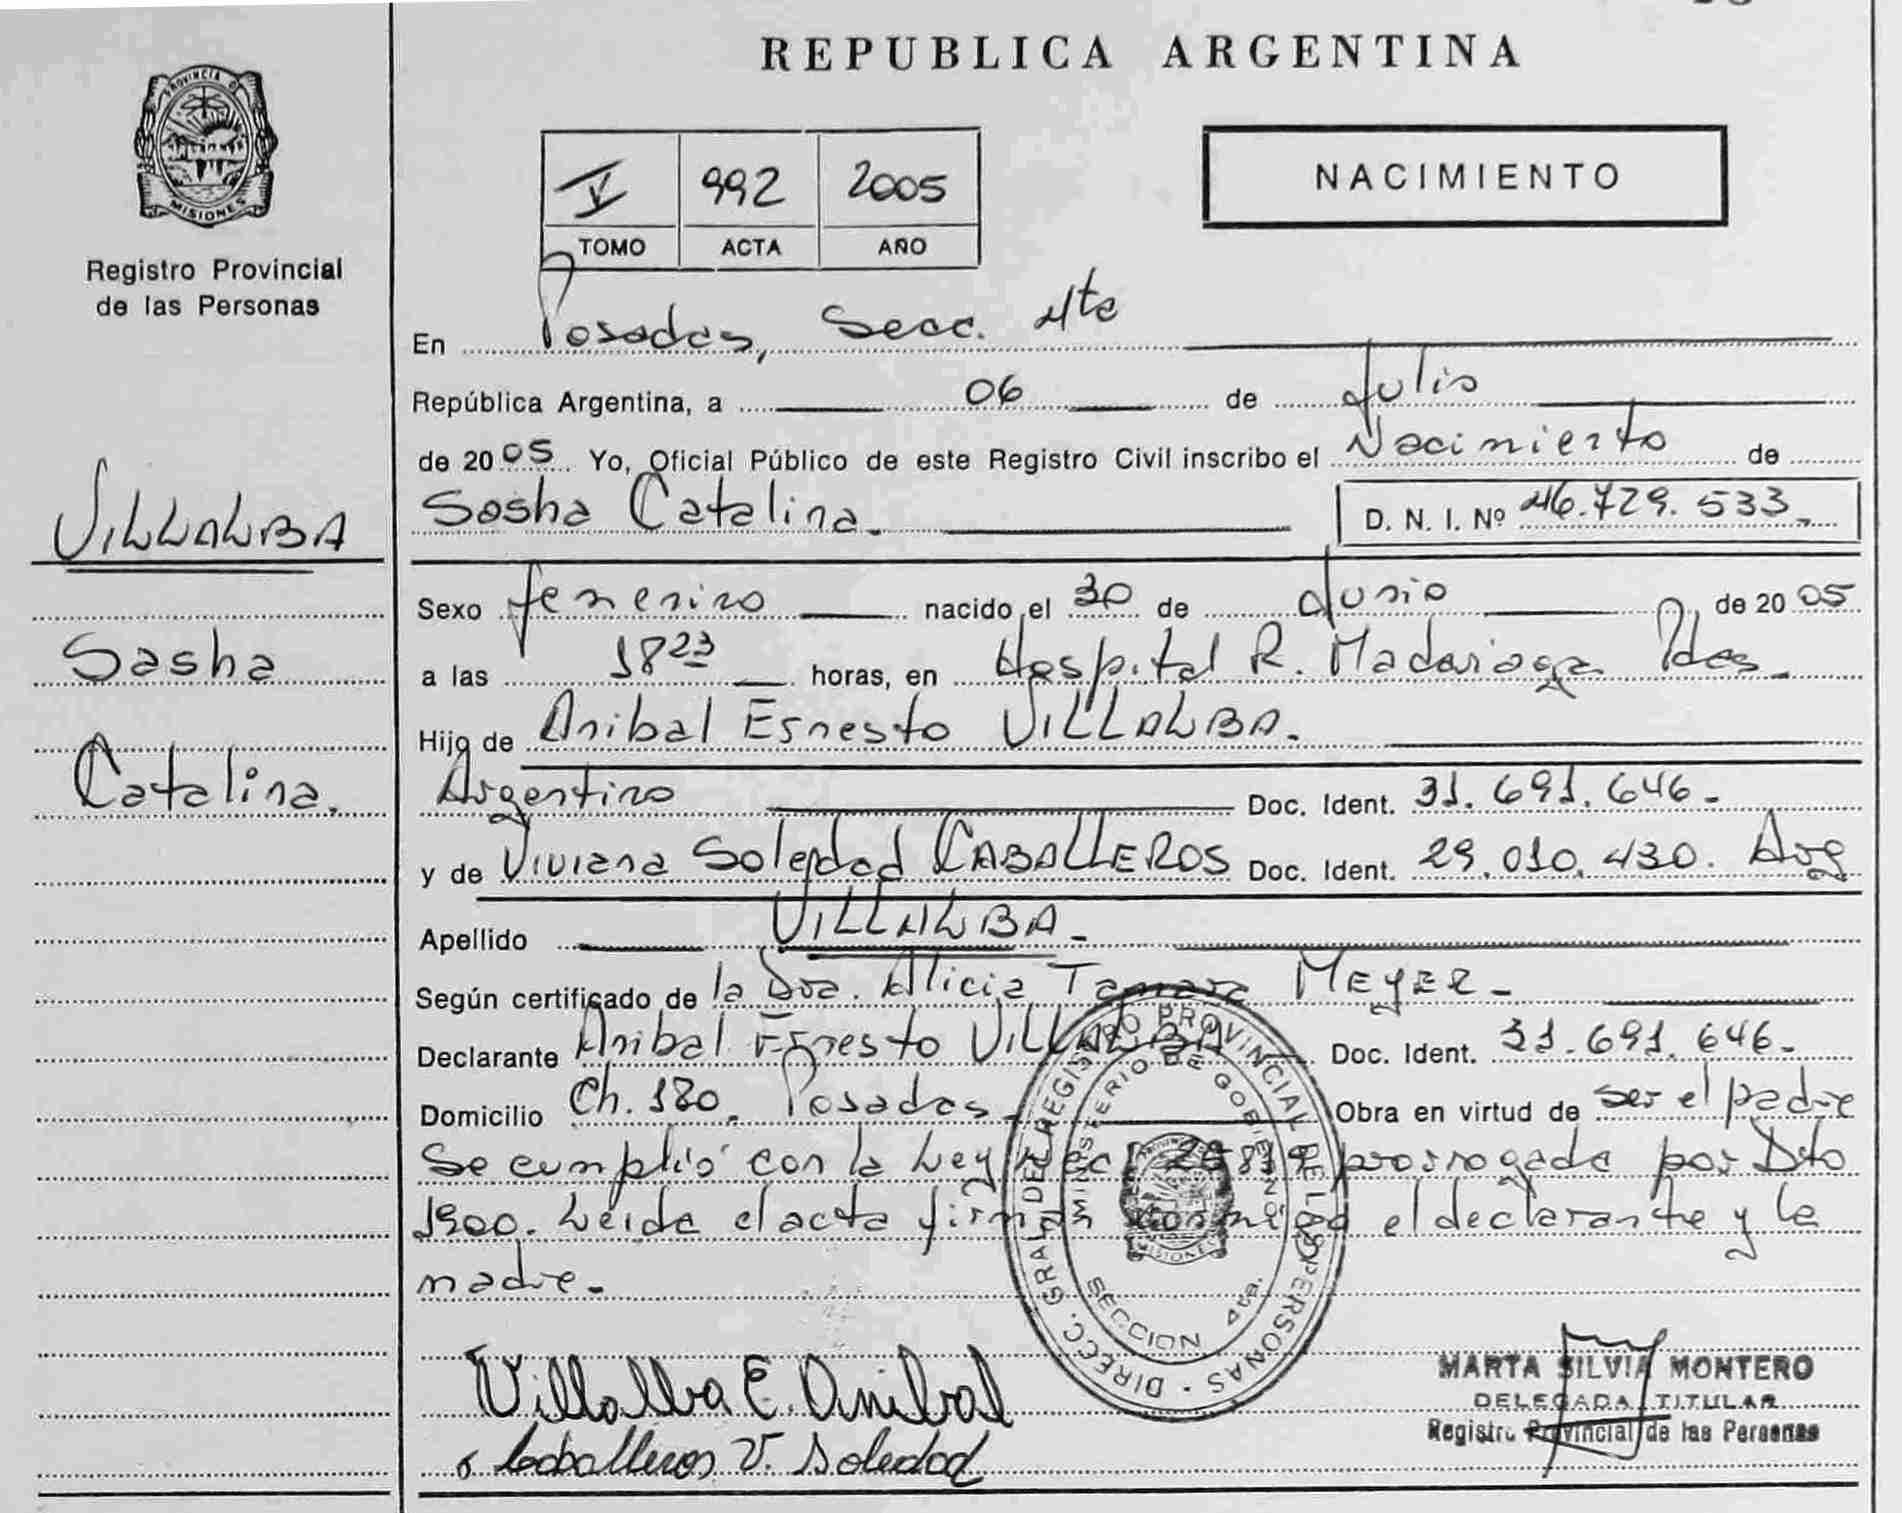 REPUBLICA ARGENTINA
PROVINCIA DE
MISIONES
Registro Provincial
de las Personas
V 992 2005
TOMO ACTA AÑO
NACIMIENTO
En Posadas, Secc. 4ta
República Argentina, a 06 de Julio
de 2005 Yo, Oficial Público de este Registro Civil inscribo el Nacimiento de
Sasha Catalina. D. N. I. Nº 46.729.533.
VILLALBA
Sasha
Catalina.
Sexo femenino nacido el 30 de Junio de 2005
a las 18 23 horas, en Hospital R. Madariaga Pdas.
Hijo de Anibal Ernesto VILLALBA.
Argentino Doc. Ident. 31.691.646.
y de Viviana Soledad CABALLEROS Doc. Ident. 29.010.430. Arg
Apellido VILLALBA.
Según certificado de la Dra. Alicia Tamara MEYER.
Declarante Anibal Ernesto VILLALBA Doc. Ident. 31.691.646.
Domicilio Ch. 180. Posadas. Obra en virtud de ser el padre
Se cumplió con la Ley Nac. prorrogada por Dto
1900. Leida el acta firman conmigo el declarante y la
madre.
DIRECC. GRAL. DEL REGISTRO PROVINCIAL DE LAS PERSONAS
MINISTERIO DE GOBIERNO
MISIONES
SECCION 4ta.
Villalba E. Anibal
Caballeros V. Soledad
MARTA SILVIA MONTERO
DELEGADA TITULAR
Registro Provincial de las Personas